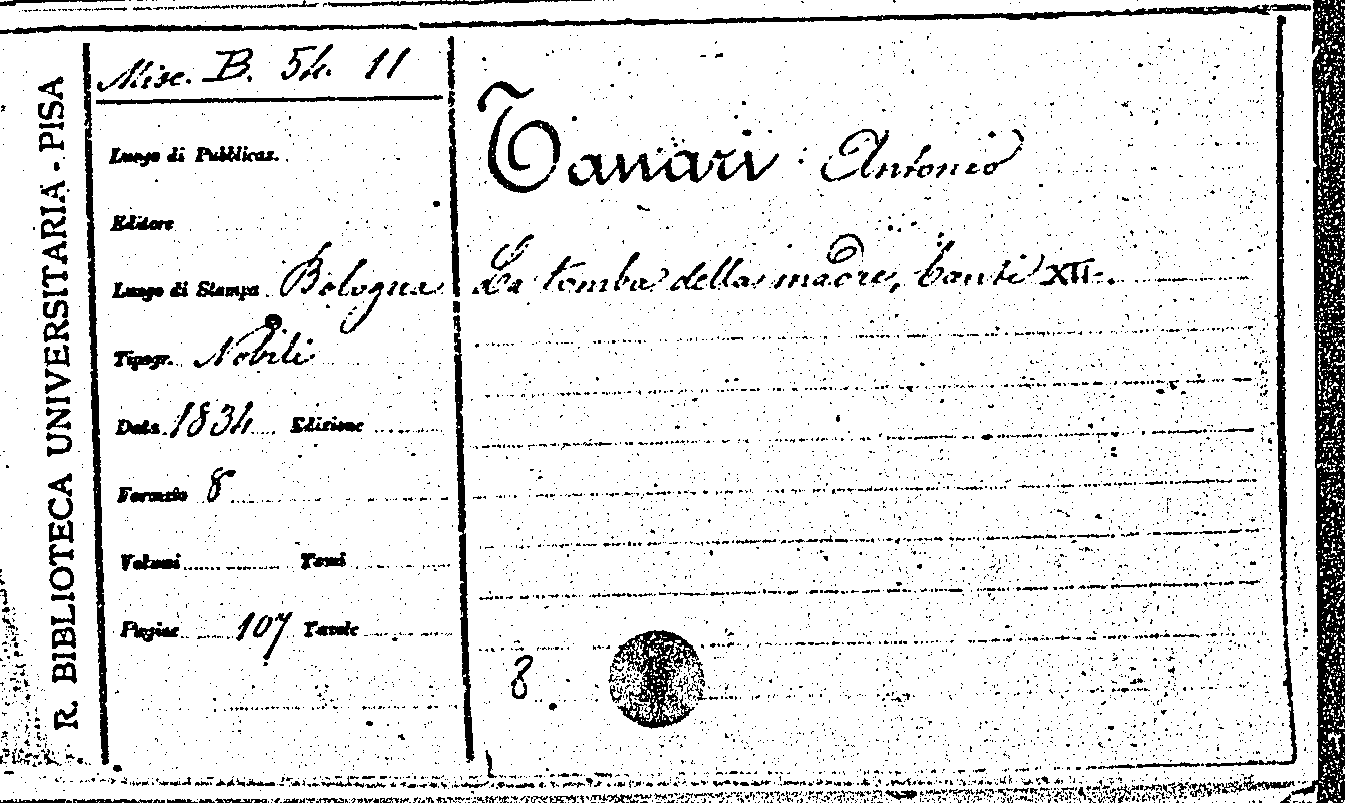 R. BIBLIOTECA UNIVERSITARIA - PISA
Misc. B. 54. 11
Luogo di Pubblicaz.
Editore
Luogo di Stampa Bologna
Tipogr. Nobili
Data 1834 Edizione
Formato 8
Volumi Tomi
Pagine 107 Tavole
Tanari Antonio
La tomba della madre, Canti XII.
8